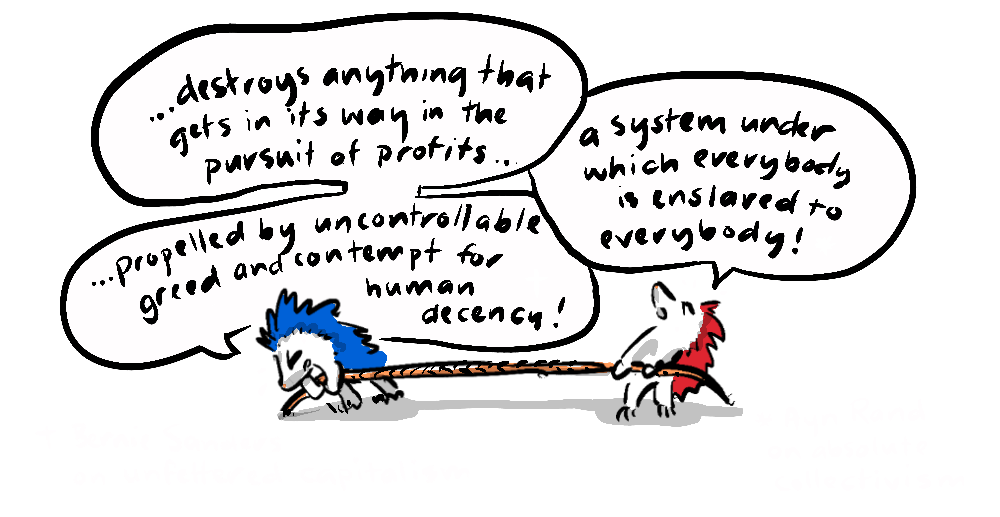 ...destroys anything that
gets in its way in the
pursuit of profits...
...propelled by uncontrollable
greed and contempt for
human
decency!
a system under
which everybody
is enslaved to
everybody!